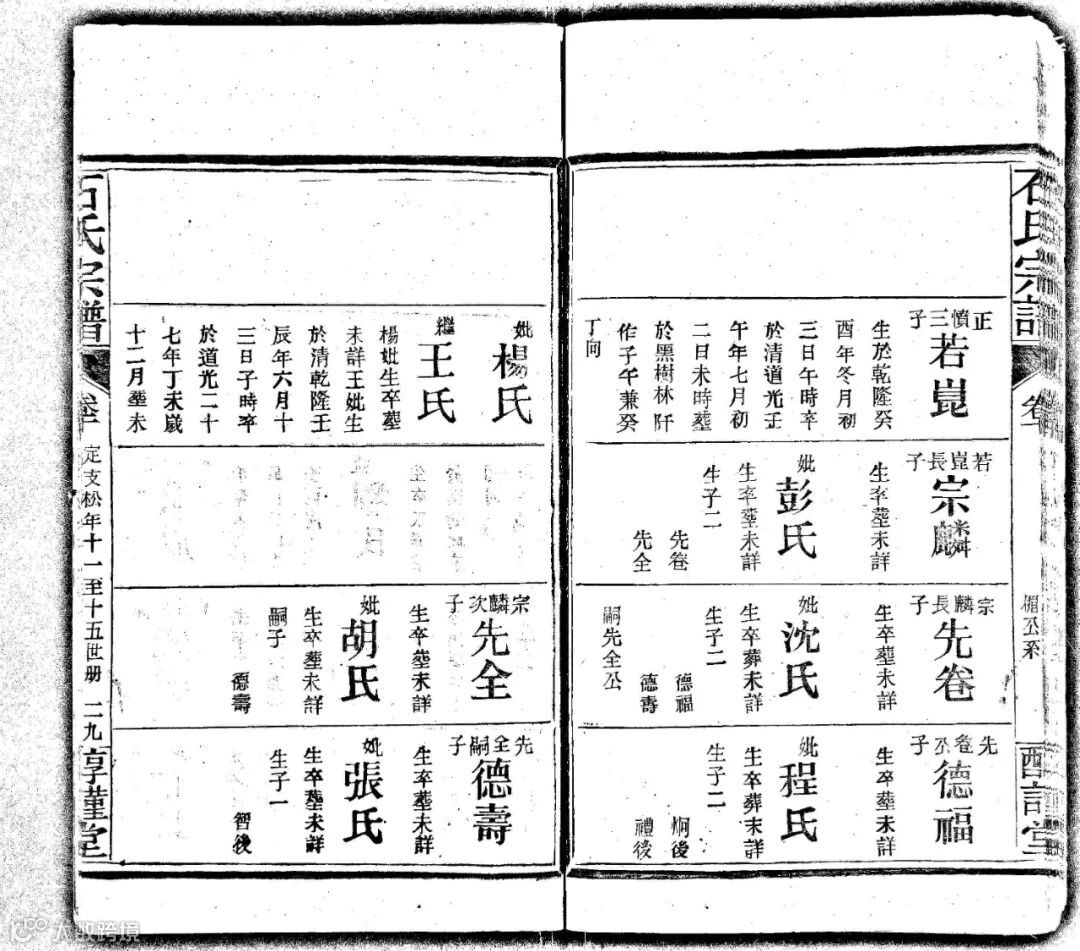 石氏宗譜
卷
楣公系
正
慎三子
若崑
生於乾隆癸
酉年冬月初
三日午時卒
於清道光壬
午年七月初
二日未時塟
於黑樹林阡
作子午兼癸
丁向
若崑長子
宗麟
生卒塟未詳
妣彭氏
生卒塟未詳
生子二
先卷
先全
宗麟長子
先卷
生卒塟未詳
妣沈氏
生卒葬未詳
生子二
德福
德壽
嗣先全公
先卷
子
德福
生卒塟未詳
妣程氏
生卒葬未詳
生子二
炯後
禮後
妣楊氏
繼王氏
楊妣生卒塟
未詳王妣生
於清乾隆壬
辰年六月十
三日子時卒
於道光二十
七年丁未歲
十二月塟未
宗麟次子
先全
生卒塟未詳
妣胡氏
生卒塟未詳
嗣子
德壽
先全嗣子
德壽
生卒塟未詳
妣張氏
生卒塟未詳
生子一
智後
石氏宗譜
卷
定支松年十一至十五世册
二九
大数跨境